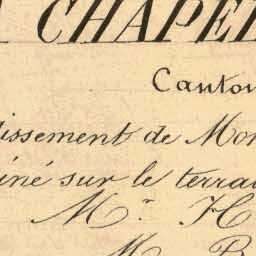 CHAPE
Canton
issement de Mon
iné sur le terrai
Mr. H
M. B